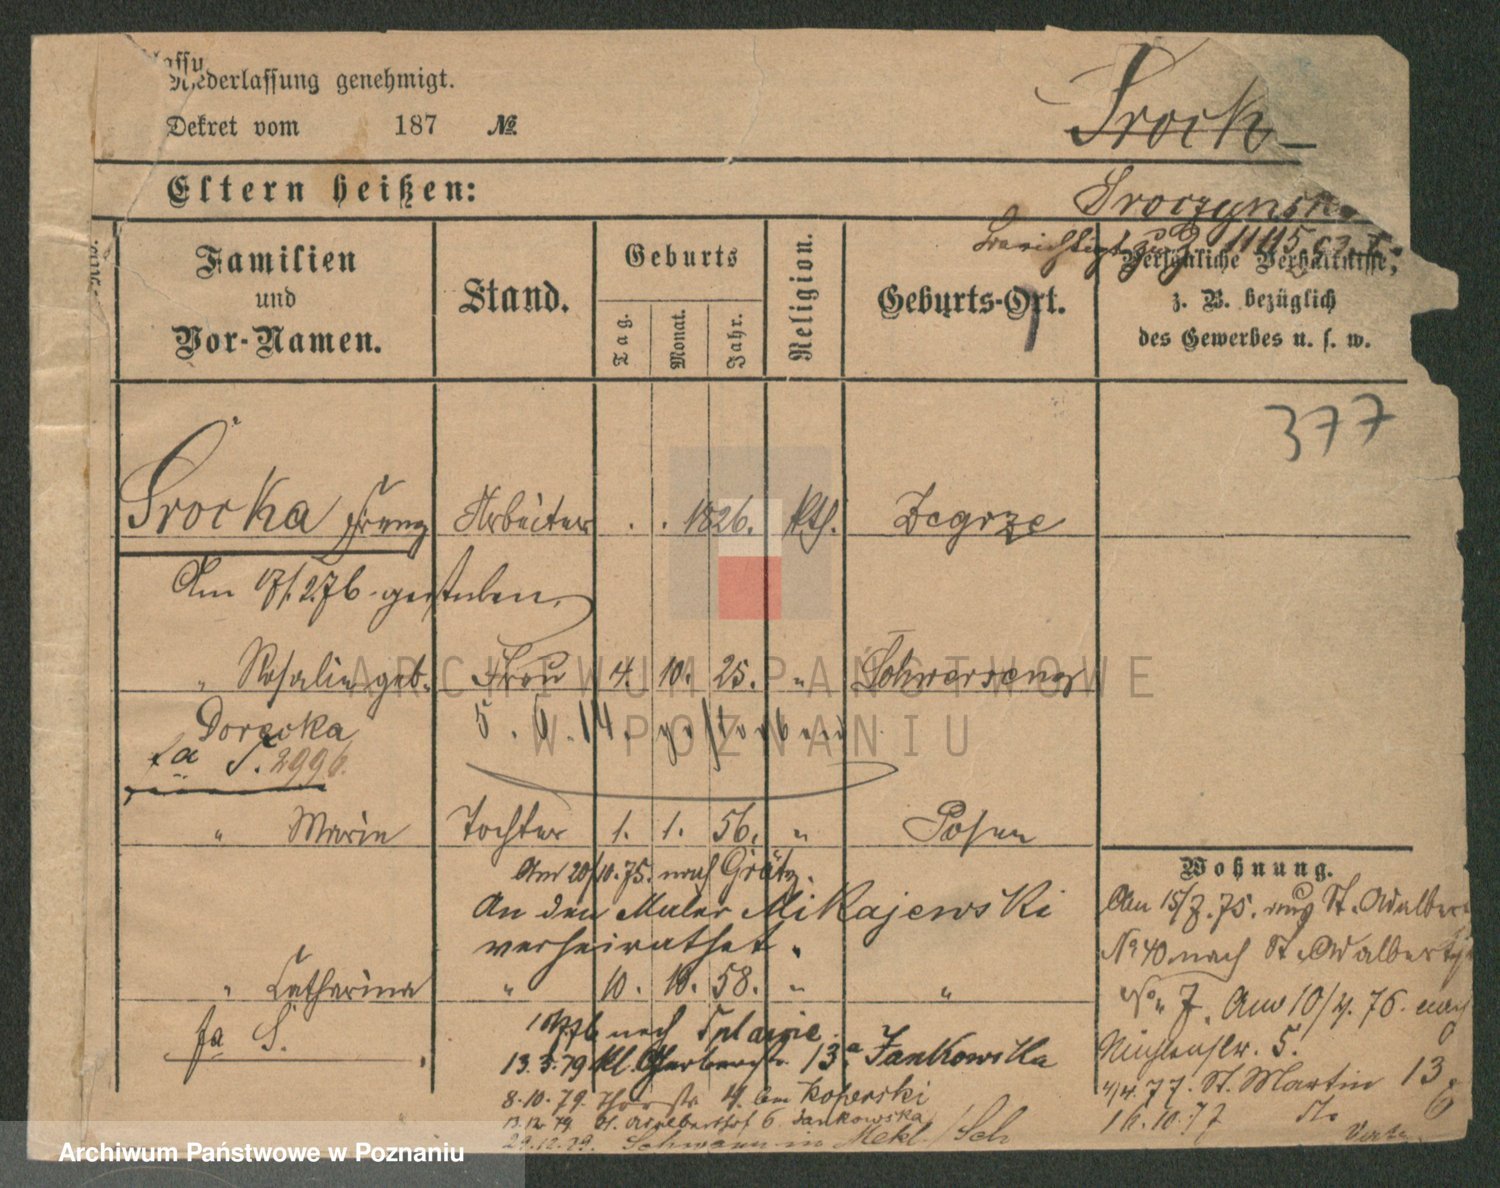 Niederlassung genehmigt.
Dekret vom 187 №
Srock
Eltern heißen:
Sroczynski
Familien und Vor-Namen.
Stand.
Geburts
Tag.
Monat.
Jahr.
Religion.
Geburts-Ort.
Persönliche Verhältnisse,
z. B. bezüglich
des Gewerbes u. s. w.
377
Srocka Franz Arbeiter . . 1826. kth. Zegrze
Am 17/2.76. gestorben
" Rosalie geb. Frau 4. 10. 25. " Schwersenz
Dorocka 5. 6. 14. gestorben
fa S. 2996.
" Marie Tochter 1. 1. 56. " Posen
Am 20/10.75. nach Grätz.
An den Maler Mikajewski
verheirathet.
" Catharina " 10. 10. 58. " "
fa S.
nach
13.3.79 kl. Gerberstr. 13a Jankowska
8.10.79. 4. bei Koperski
6 Jankowska
29.12.79. Schwaan in Mekl. / Sch
Wohnung.
Am 15/7.75. St. Adalbert
No 40 nach St. Adalbert
No 7. Am 10/4.76. nach
5.
4/4.77. St. Martin 13
16.10.77
Archiwum Państwowe w Poznaniu
ARCHIWUM PAŃSTWOWE
W POZNANIU